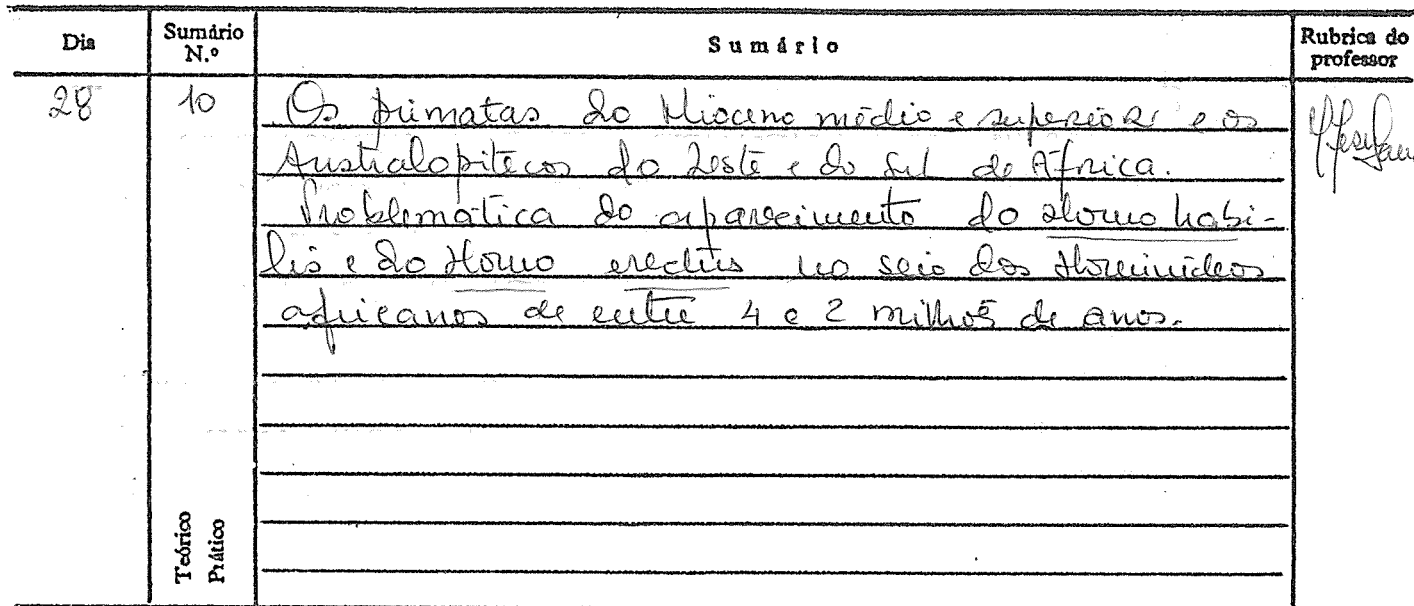 Dia Sumário N.º Sumário Rubrica do professor
28 10 Os primatas do Mioceno médio e superior e os
Australopitecos do Leste e do Sul de África.
Problemática do aparecimento do Homo habi-
lis e do Homo erectus no seio dos Hominídeos
africanos de entre 4 e 2 milhões de anos.
Teórico
Prático